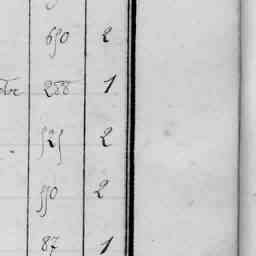 650 2
288 1
525 2
550 2
87 1